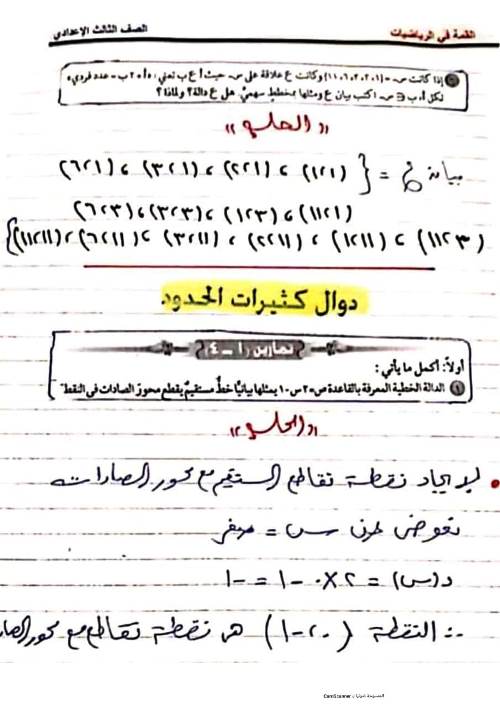 القمة في الرياضيات
الصف الثالث الإعدادى
إذا كانت س = {١، ٢، ٣، ٦، ١١} وكانت ع علاقة على س حيث أ ع ب تعني: «أ + ٢ب = عدد فردي»
لكل أ، ب ∈ س اكتب بيان ع ومثلها بمخطط سهمي. هل ع دالة؟ ولماذا؟
"الحل"
بيان ع = { (١،١) ، (١،٢) ، (١،٣) ، (١،٦)
(١،١١) ، (٣،١) ، (٣،٣) ، (٣،٦)
(٣،١١) ، (١١،١) ، (١١،٢) ، (١١،٣) ، (١١،٦) ، (١١،١١)}
دوال كثيرات الحدود
تمارين (١ - ٤)
أولاً: أكمل ما يأتي:
١ الدالة الخطية المعرفة بالقاعدة ص = ٢س - ١ يمثلها بيانيًا خطٌ مستقيمٌ يقطع محورَ الصادات في النقطة
"الحل"
لإيجاد نقطة تقاطع المستقيم مع محور الصادات
نعوض عن س = صفر
د(س) = ٢ × ٠ - ١ = -١
∴ النقطة (٠، -١) هى نقطة تقاطع مع محور الصا
الممسوحة ضوئيا بـ CamScanner